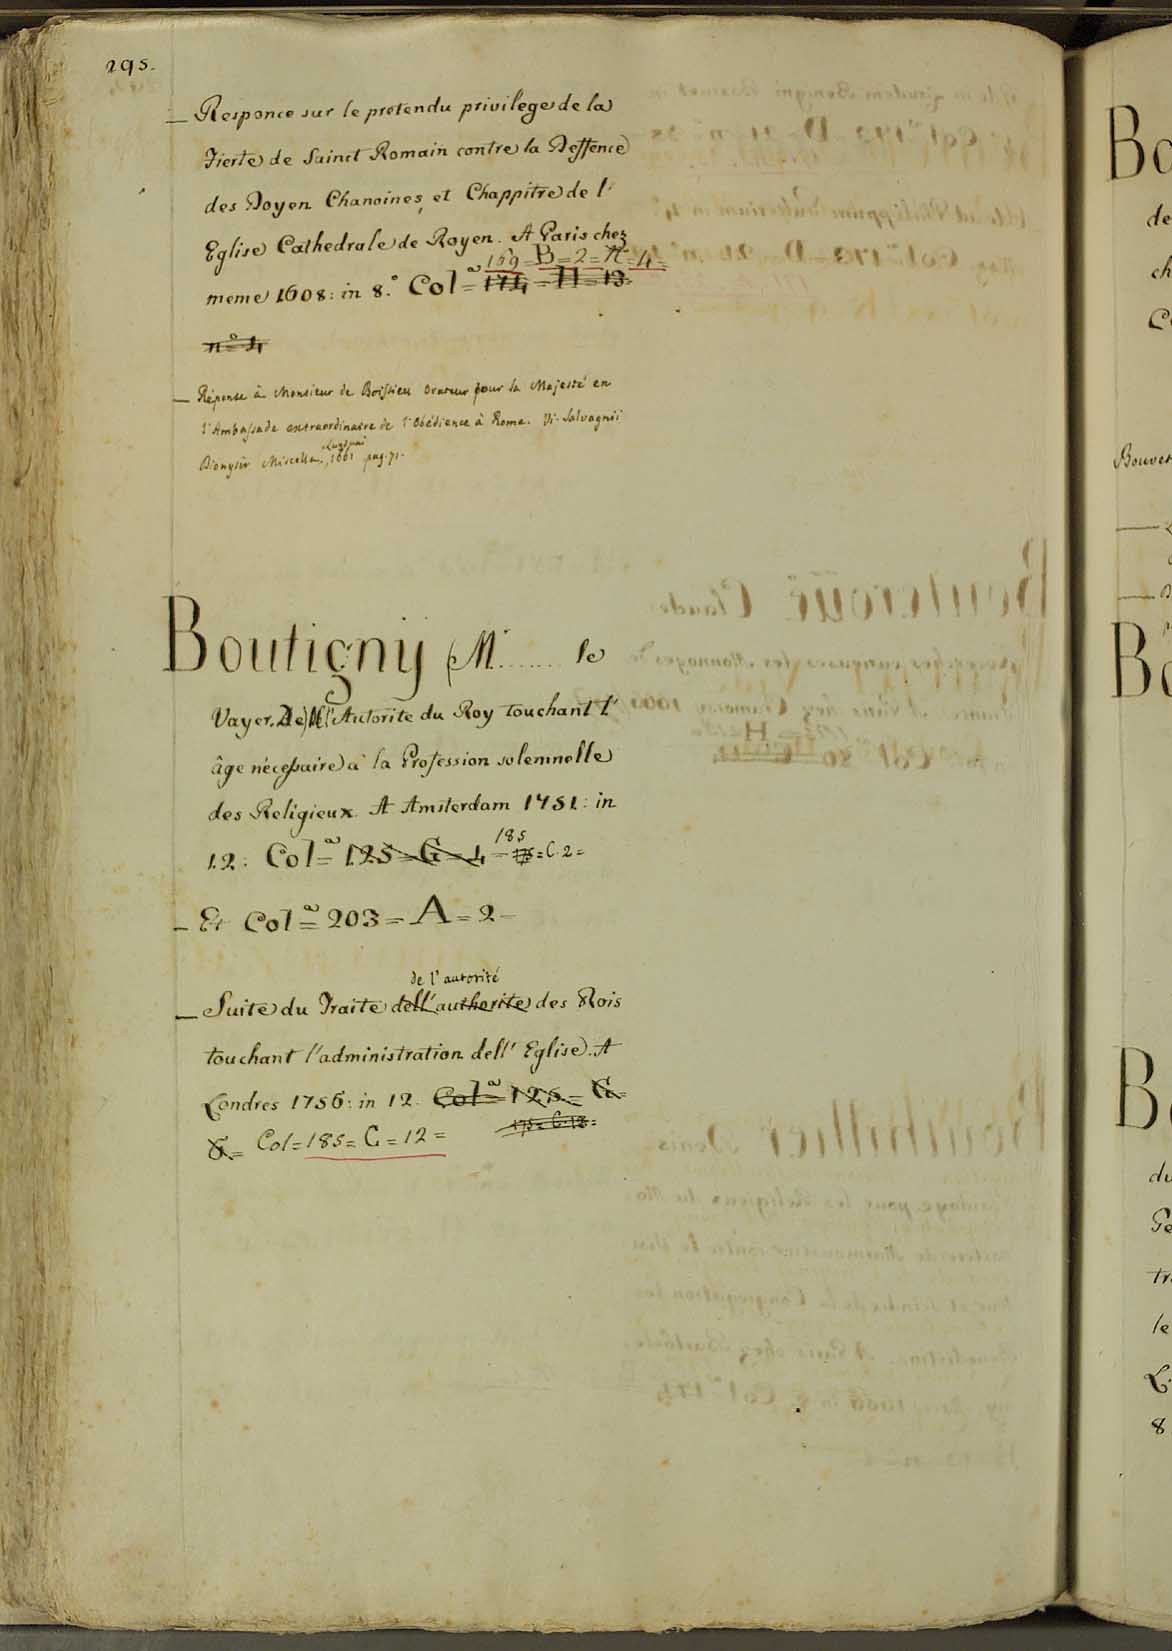 295.
— Responce sur le pretendu privilege de la
Fierte de Sainct Romain contre la Deffence
des Doyen Chanoines, et Chappitre de l'
Eglise Cathedrale de Royen. A Paris chez
169 = B = 2 = A = 4 =
meme 1608: in 8.° Col.ª = 174 = H = 13
n.° 4
— Réponse à Monsieur de Boissieu Orateur pour sa Majesté en
l'Ambassade extraordinaire de l'Obédience à Rome. Vi. Salvagnii
Dionysii Miscella. 1661 pag. 71.
Boutigny (M.r ....... le
Vayer. De) l'Autorite du Roy touchant l'
âge nécessaire à la Profession solemnelle
des Religieux. A Amsterdam 1751: in
185
12: Col.ª = 125 = G = 4 = = C. 2 =
— Et Col.ª = 203 = A = 2 =
de l'autorité
— Suite du Traite dell'authorite des Rois
touchant l'administration dell' Eglise. A
Londres 1756: in 12. Col.ª = 125 = G =
6 = Col = 185 = C = 12 = 175 = C. 12 =
Bo
de
ch
Bouver
Bo
B
du
Ge
tr
le
L
8